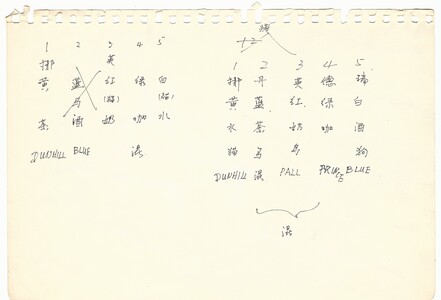 1 2 3 4 5
挪 英
黄 蓝 红 绿 白
马 (猫) (猫)
茶 酒 奶 咖 水
DUNHILL BLUE 混
1 2 3 4 5
挪 丹 英 德 瑞
黄 蓝 红 绿 白
水 茶 奶 咖 酒
猫 马 鸟 狗
DUNHILL 混 PALL PRINCE BLUE
混